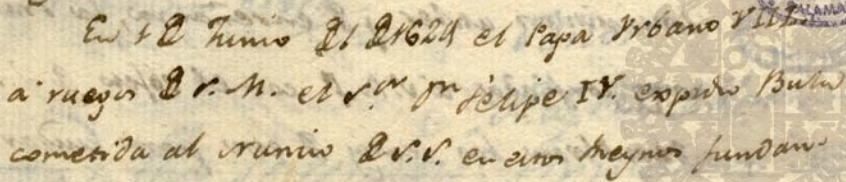 En 1 de Junio de 1624 el Papa Vrbano VIII.
a ruegos de S. M. el S.or Dn felipe IV. expidio Bula
cometida al Nuncio de S.S. en estos Reynos fundan